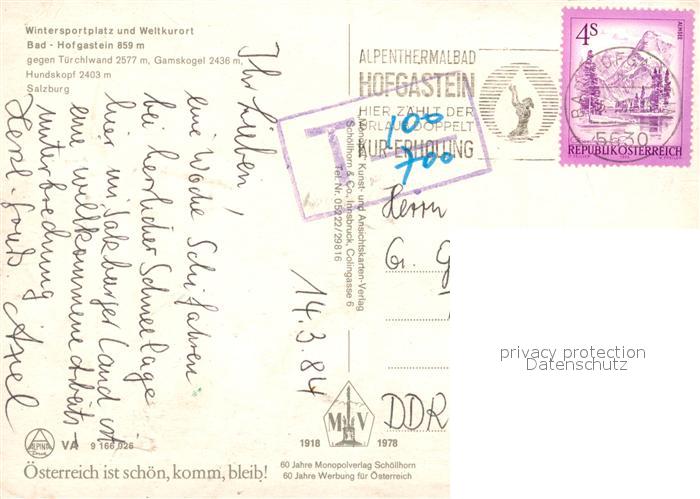 Wintersportplatz und Weltkurort
Bad - Hofgastein 859 m
gegen Türchlwand 2577 m, Gamskogel 2436 m,
Hundskopf 2403 m
Salzburg
Ihr Lieben,
eine Woche Schifahren
bei herrlicher Schneelage
hier im Salzburger Land ist
eine willkommene Arbeits-
unterbrechung
Herzl. Gruß Axel
14.3.84
VA 9 166 026
ALPINA
Druck
Österreich ist schön, komm, bleib!
Monopol Kunst- und Ansichtskarten-Verlag
Schöllhorn & Co., Innsbruck, Colingasse 6
Tel. Nr. 05222/29816
MV
1918 1978
60 Jahre Monopolverlag Schöllhorn
60 Jahre Werbung für Österreich
ALPENTHERMALBAD
HOFGASTEIN
HIER ZÄHLT DER
URLAUB DOPPELT
KUR-ERHOLUNG
T
100
700
4S
ALMSEE
5630
REPUBLIK ÖSTERREICH
Herrn
G. G
DDR
privacy protection
Datenschutz